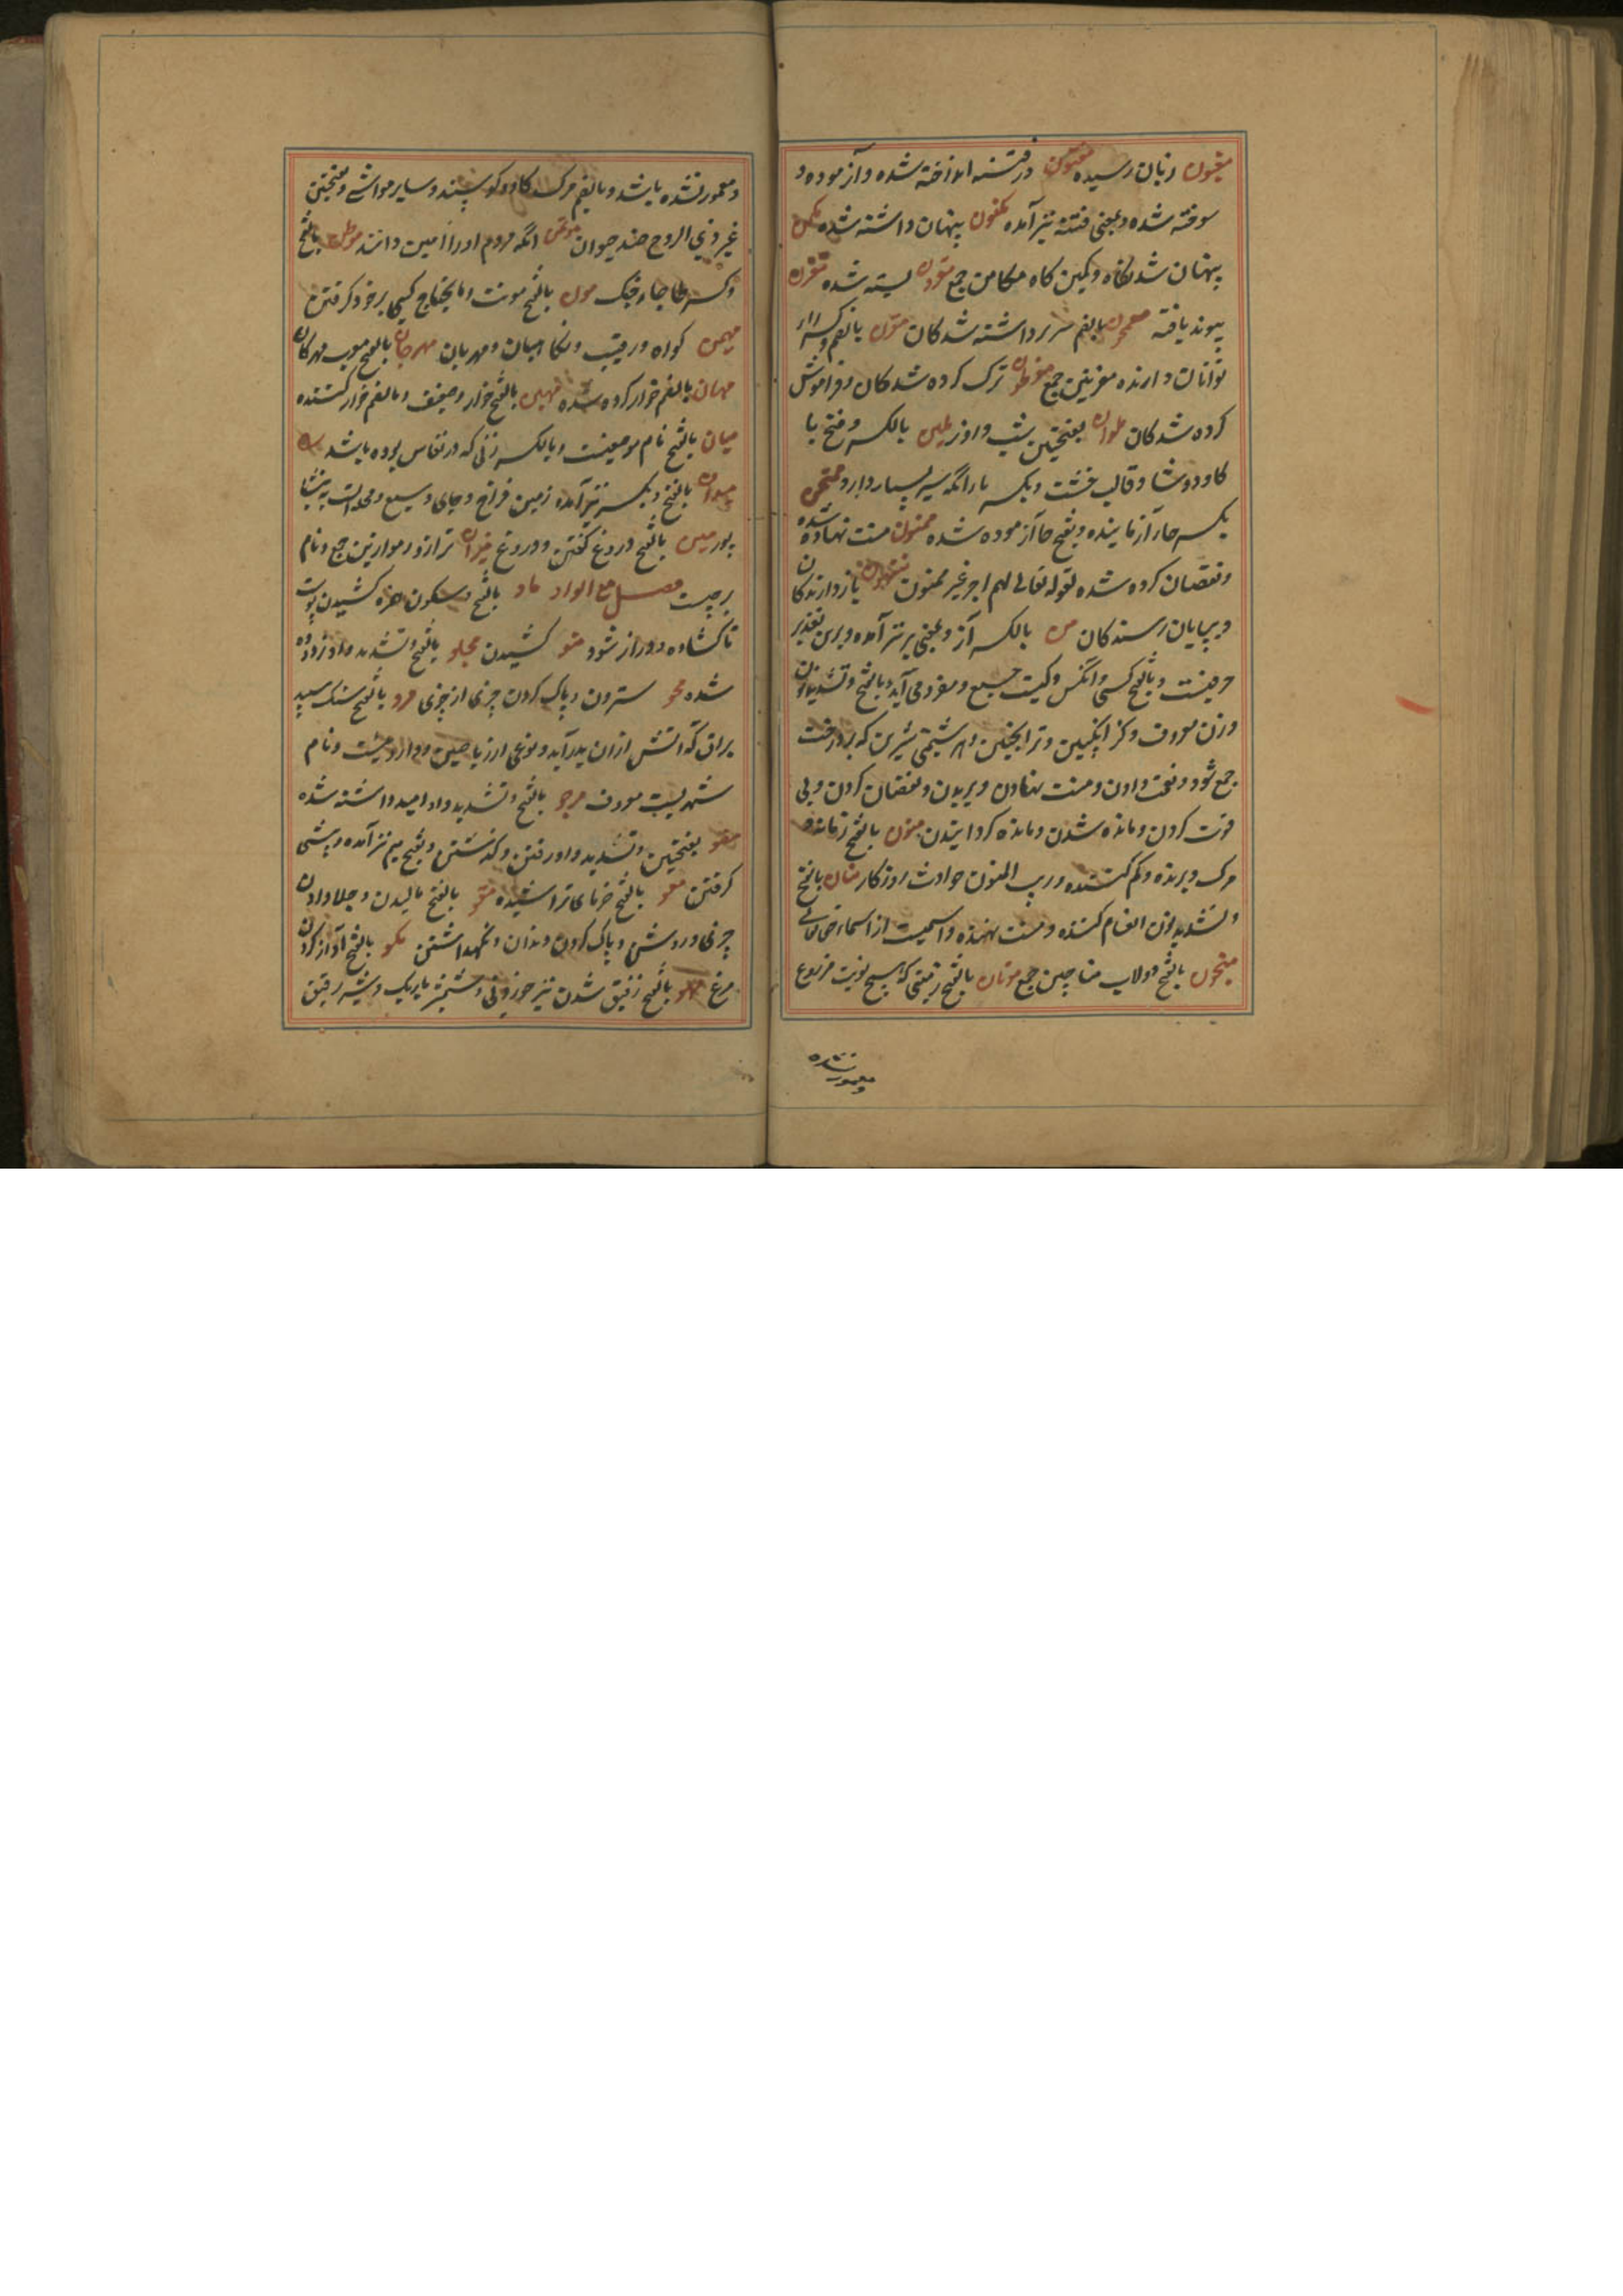 مغبون زیان رسیده مفتون در فتنه انداخته شده و آزموده و
سوخته شده و بمعنی فتنه نیز آمده مکنون پنهان داشته شده مکمن
پنهان شدنگاه و کمین گاه مکامن جمع مقرون بسته شده مقرن
پیوند یافته بالضم سر برداشته شدگان مقرن بالضم و کسر راء
توانان دارنده مقرنین جمع مفرطون ترک کرده شدگان و فراموش
کرده شدگان ملوان بفتحتین شب و روز ملبن بالکسر و فتح با
کاو دوشا و قالب خشت و بکسر با رانکه شیر بسیار دارد ممتحن
بکسر حاء آزماینده و بفتح حا آزموده شده ممنون منت نهاده شده
و نقصان کرده شده لقوله تعالی لهم اجر غیر ممنون منتهون بازدارندگان
و بپایان رسندگان من بالکسر از و بمعنی بر نیز آمده و برین تقدیر
حرفیست و بالفتح کسی و آنکس و کیست جمع و مفرد می آید و بالفتح و تشدید نون
وزن معروف و کز انکبین و ترانجبین و هر شبنمی شیرین که بر درخت
جمع شود و نعمت دادن و منت نهادن و بریدن و نقصان کردن و بی
قوت کردن و مانده شدن و مانده کردانیدن منون بالفتح زمانه و
مرک و برنده و کم کننده و ریب المنون حوادث روزگار منان بالفتح
و تشدید نون انعام کننده و منت نهنده و اسمیست از اسماء خدایتعالی
منجنون بالفتح دولاب مناجین جمع موتان بالفتح زمینی که هیچ نوبت مزروع
و معمور نشده
و معمور نشده باشد و بالضم مرک کاو و کوسپند و سایر مواشی و بفتحتین
غیر ذی الروح ضد حیوان موتمن انکه مردم او را امین دانند موطن بالفتح
و کسر طا جاء جنک مون بالفتح مونت و مایحتاج کسی بر خود کرفتن
مهیمن کواه و رقیب و نکاهبان و مهربان مهرجان بالفتح معرب مهرکان
مهان بالضم خوار کرده شده مهین بالفتح خوار و ضعیف و بالضم خوار کننده
میان بالفتح نام موضعیست و بالکسر زنی که در نفاس بوده باشد
میدان بالفتح و بکسر نیز آمده زمین فراخ و جای وسیع و محله ایست به نیشا
پور مین بالفتح دروغ کفتن و دروغ میزان ترازو موازین جمع و نام
برجیست فصل مع الواو ماو بالفتح و سکون همزه کشیدن پوست
تا کشاده و دراز شود متو کشیدن مجلو بالفتح و تشدید واو زدوده
شده محو ستردن و پاک کردن چیزی از چیزی مرو بالفتح سنک سپید
براق که آتش از آن پدید آید و نوعی از ریاحین و داروئیست و نام
شهریست معروف مرجو بالفتح و تشدید واو امید داشته شده
بفتحتین و تشدید واو رفتن و کذشتن و بفتح میم نیز آمده و پیشی
کرفتن معو بالفتح خرمای تر رسیده مقو بالفتح مالیدن و جلا دادن
چیزی و روشن و پاک کردن دندان و نکهداشتن مکو بالفتح آواز کردن
مرغ مهو بالفتح رقیق شدن شیر و شمشیر باریک و شیر رقیق